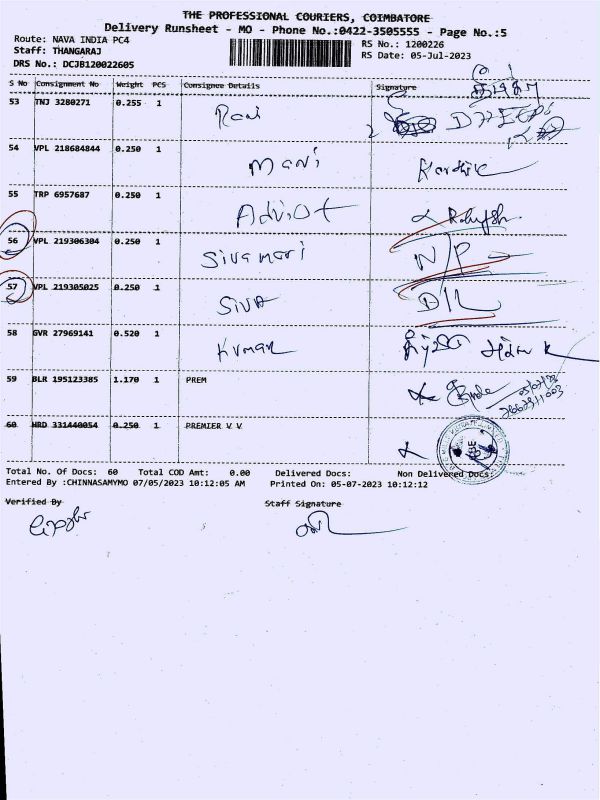 THE PROFESSIONAL COURIERS, COIMBATORE
Delivery Runsheet - MO - Phone No.:0422-3505555 - Page No.:5
Route: NAVA INDIA PC4 RS No.: 1200226
Staff: THANGARAJ RS Date: 05-Jul-2023
DRS No.: DCJB120022605
S No Consignment No Weight PCS Consignee Details Signature
53 TNJ 3280271 0.255 1 Rani
54 VPL 218684844 0.250 1 mani Karthik
55 TRP 6957687 0.250 1
56 VPL 219306304 0.250 1 Sivamari N/P
57 VPL 219305025 0.250 1 SIVA D/L
58 GVR 27969141 0.520 1 Kumar
59 BLR 195123385 1.170 1 PREM
60 HRD 331440054 0.250 1 PREMIER V V
Total No. Of Docs: 60 Total COD Amt: 0.00 Delivered Docs: Non Delivered Docs:
Entered By :CHINNASAMYMO 07/05/2023 10:12:05 AM Printed On: 05-07-2023 10:12:12
Verified By Staff Signature